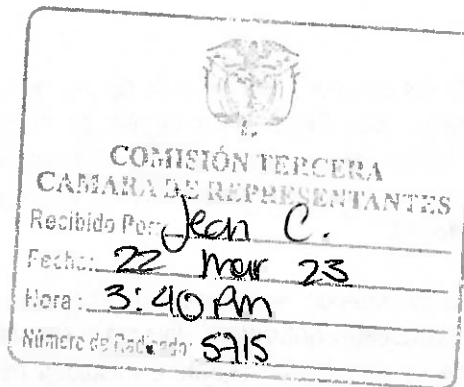 COMISIÓN TERCERA
CAMARA DE REPRESENTANTES
Recibido Por: Jean C.
Fecha: 22 Mar 23
Hora: 3:40 Pm
Número de Radicado: 5715